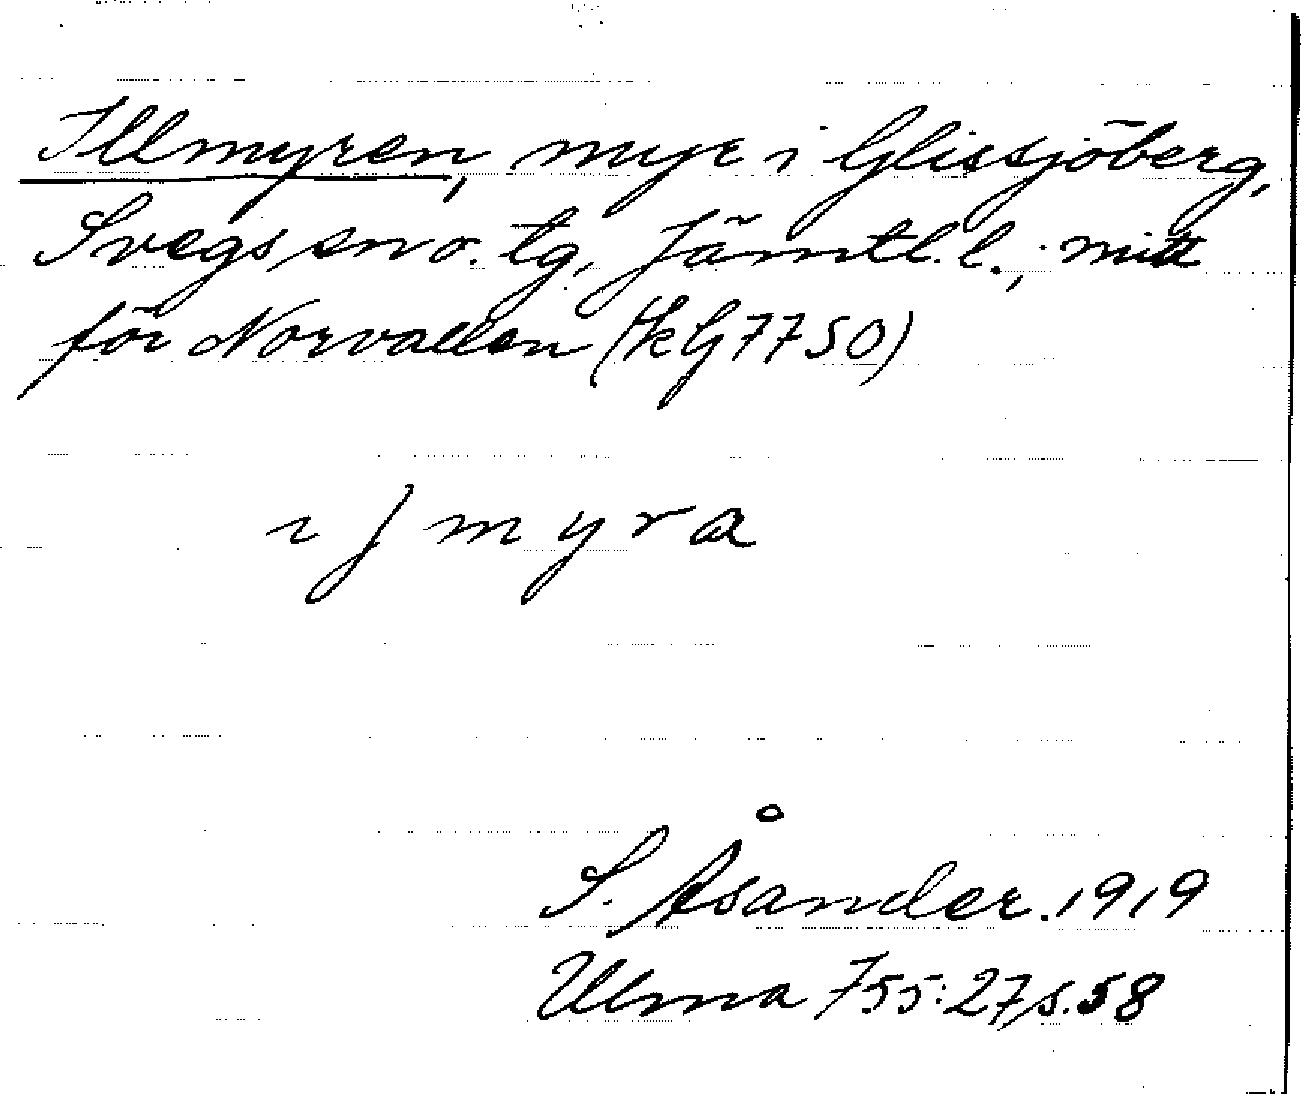 Illmyren, myr i Glissjöberg,
Svegs sn o. tg, Jämtl. l., mitt
för Norvallen (Hk G 7750)
ı ʃ m y r a
S. Åsander. 1919
Ulma 755:27, s. 58